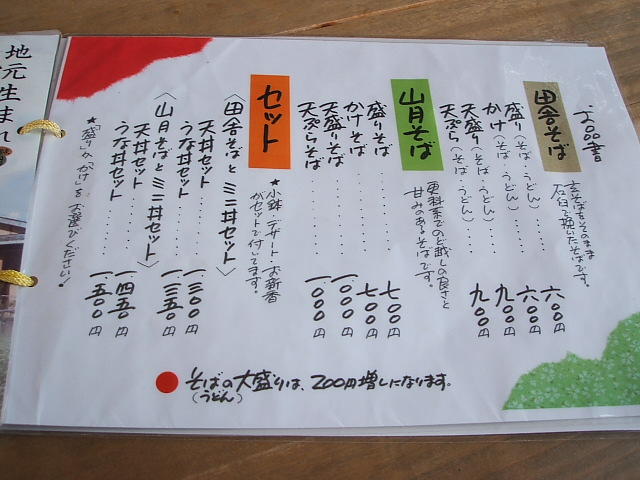 お品書
田舎そば
玄そばをそのまま
石臼で挽いたそばです。
盛り(そば・うどん)‥‥六〇〇円
かけ(そば・うどん)‥‥六〇〇円
天盛り(そば・うどん)‥‥九〇〇円
天ぷら(そば・うどん)‥‥九〇〇円
山月そば
更科系でのど越しの良さと
甘みのあるそばです。
盛りそば‥‥七〇〇円
かけそば‥‥七〇〇円
天盛りそば‥‥一、〇〇〇円
天ぷらそば‥‥一、〇〇〇円
セット
★小鉢・デザート・お新香
がセットで付いてます。
〈田舎そばとミニ丼セット〉
天丼セット‥‥一、三〇〇円
うな丼セット‥‥一、三五〇円
〈山月そばとミニ丼セット〉
天丼セット‥‥一、四五〇円
うな丼セット‥‥一、五〇〇円
★「盛り」か「かけ」をお選びください!
●そばの大盛りは、200円増しになります。
(うどん)
地元生まれ